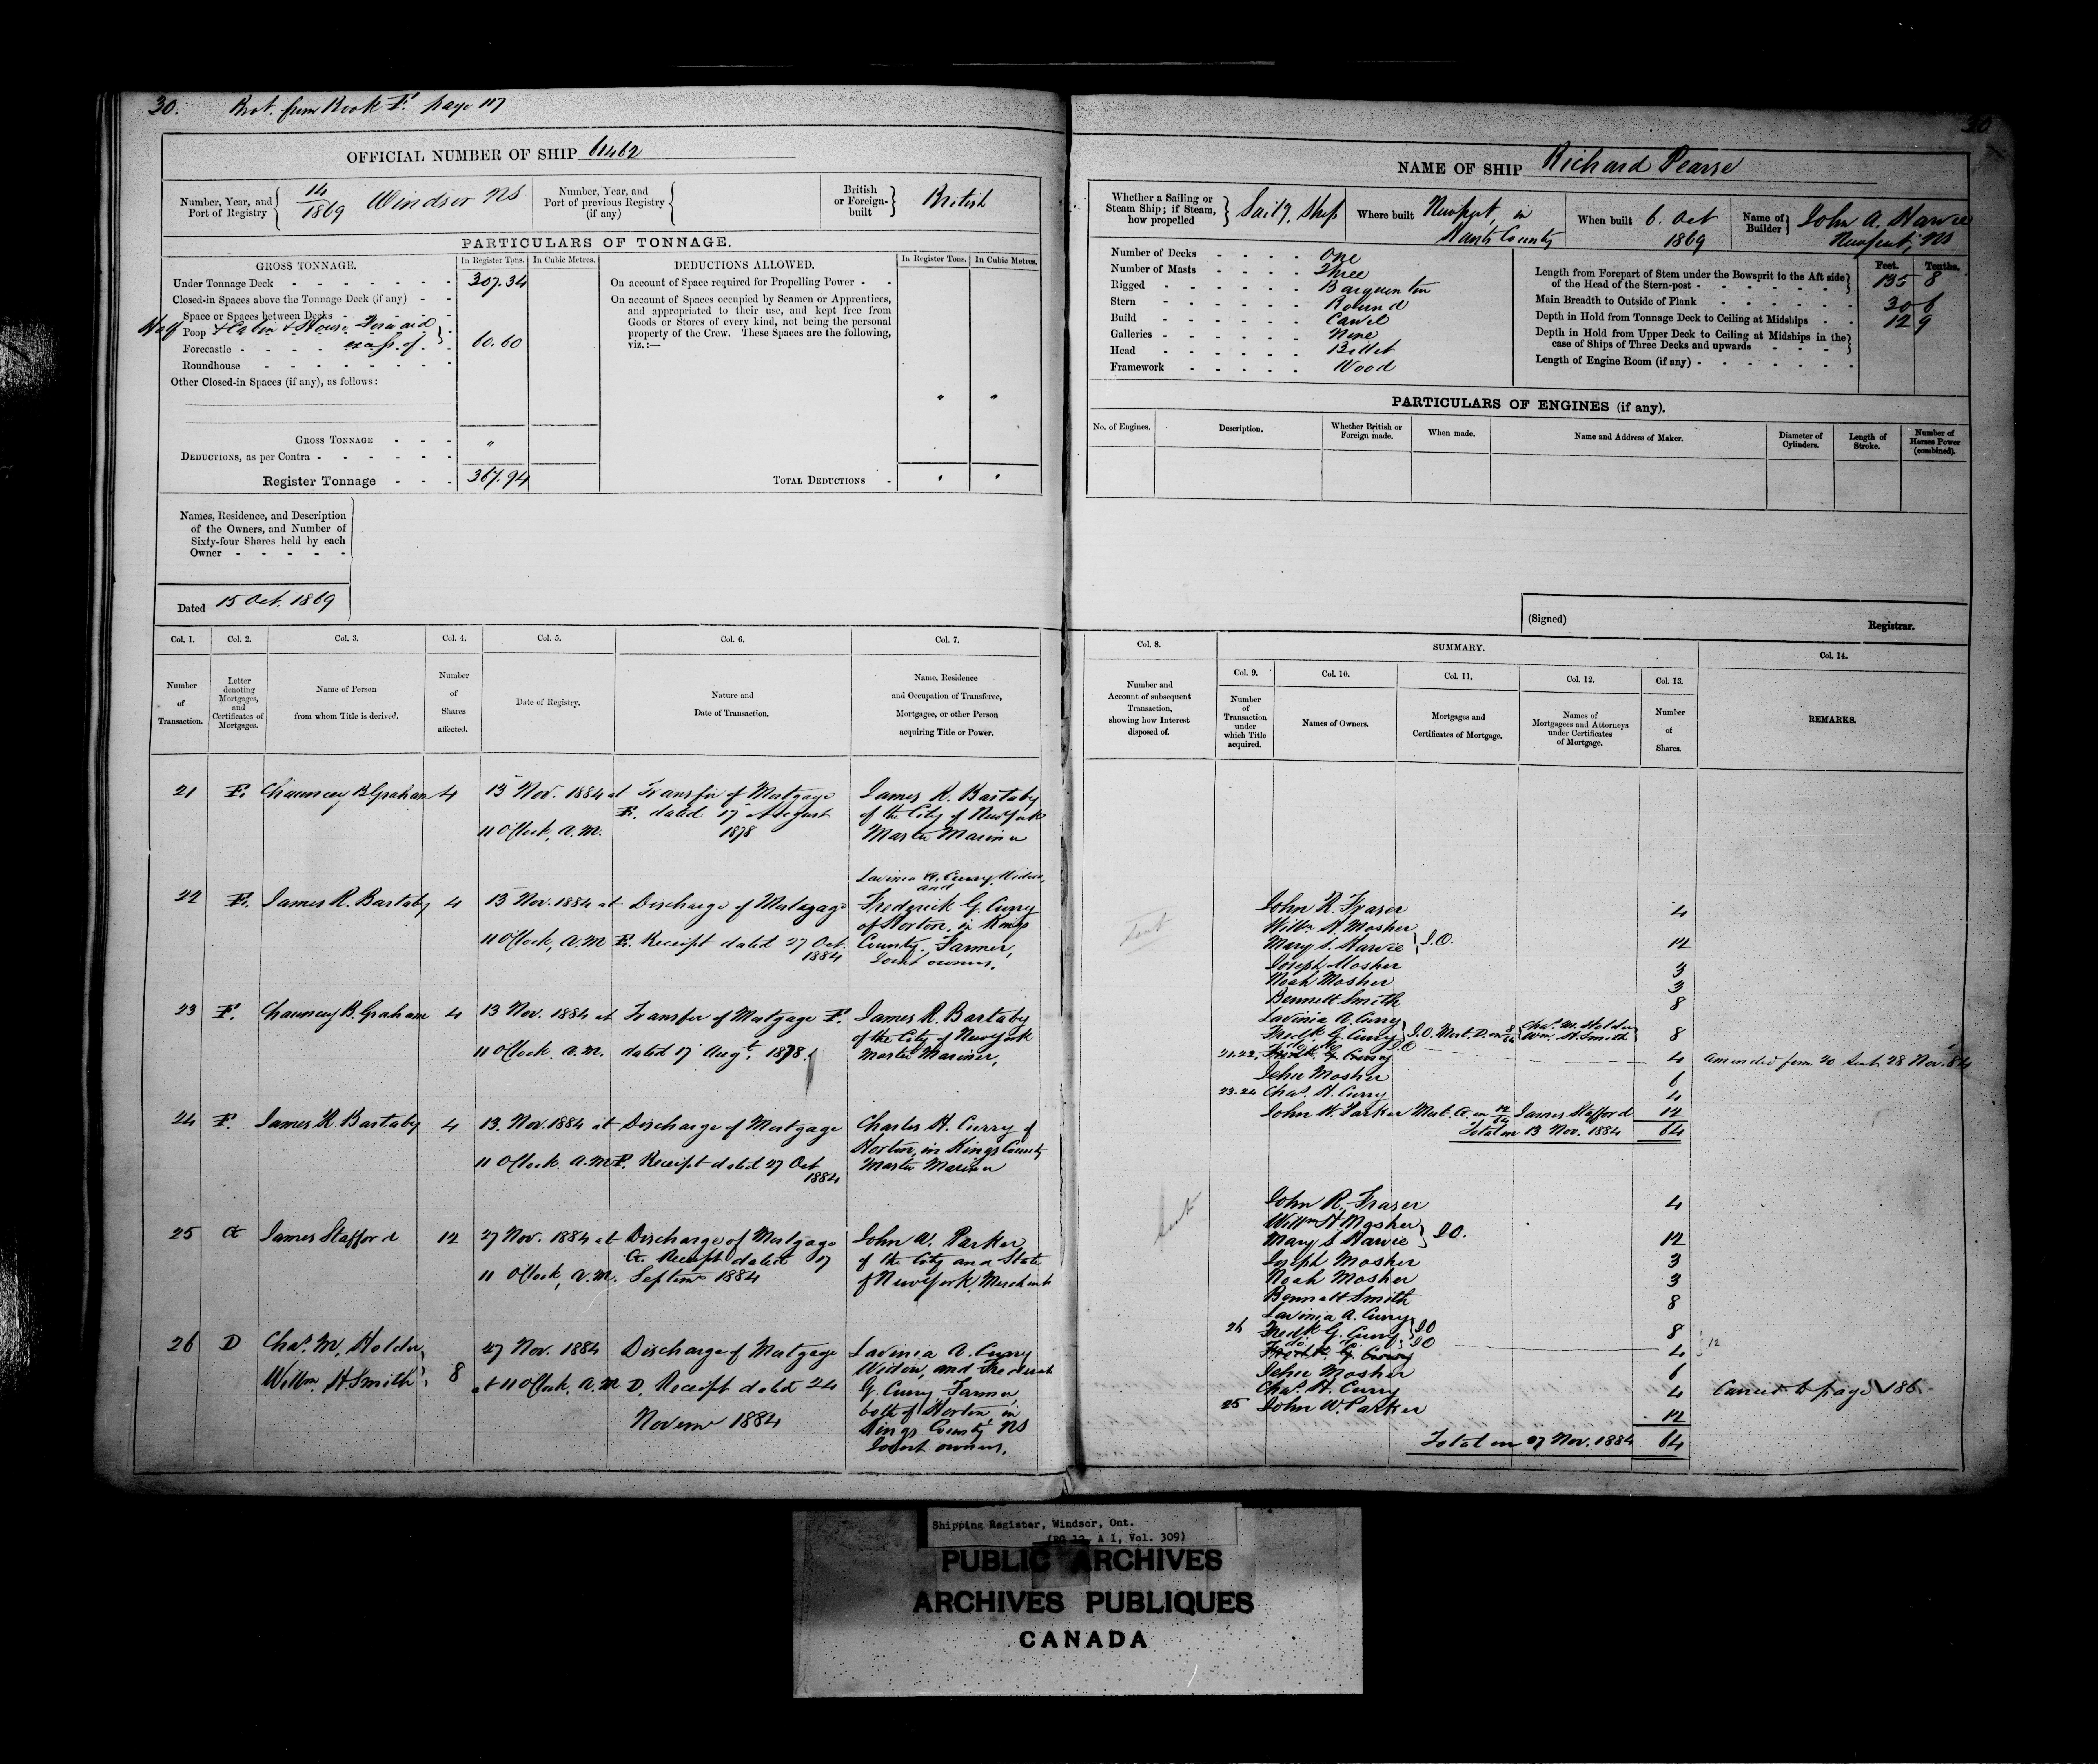 30. Brot. from Book F. page 117
OFFICIAL NUMBER OF SHIP 61462
Number, Year, and Port of Registry 14/1869 Windsor NS
Number, Year, and Port of previous Registry (if any)
British or Foreign-built British
PARTICULARS OF TONNAGE.
GROSS TONNAGE.
In Register Tons. In Cubic Metres.
DEDUCTIONS ALLOWED.
In Register Tons. In Cubic Metres.
Under Tonnage Deck 307.34
Closed-in Spaces above the Tonnage Deck (if any)
Space or Spaces between Decks
Half Poop & Cabin & House Forward
Forecastle 60.60
Roundhouse
Other Closed-in Spaces (if any), as follows:
GROSS TONNAGE "
DEDUCTIONS, as per Contra
Register Tonnage 367.94
On account of Space required for Propelling Power
On account of Spaces occupied by Seamen or Apprentices,
and appropriated to their use, and kept free from
Goods or Stores of every kind, not being the personal
property of the Crew. These Spaces are the following,
viz.:—
TOTAL DEDUCTIONS
Names, Residence, and Description
of the Owners, and Number of
Sixty-four Shares held by each
Owner
Dated 15 Oct. 1869
Col. 1. Col. 2. Col. 3. Col. 4. Col. 5. Col. 6. Col. 7.
Number of Transaction.
Letter denoting Mortgages, and Certificates of Mortgages.
Name of Person from whom Title is derived.
Number of Shares affected.
Date of Registry.
Nature and Date of Transaction.
Name, Residence and Occupation of Transferee, Mortgagee, or other Person acquiring Title or Power.
21 F. Chauncey B. Graham 4 13 Nov. 1884 at Transfer of Mortgage James R. Bartaby
F. dated 17 August of the City of New York
11 O'Clock, a.m. 1878 Master Mariner
Lavinia A. Curry, Widow,
and
22 F. James R. Bartaby 4 13 Nov. 1884 at Discharge of Mortgage Frederick G. Curry
of Horton, in Kings
11 O'Clock, a.m F. Receipt dated 27 Oct. County, Farmer,
1884 Joint owners.
23 F. Chauncey B. Graham 4 13 Nov. 1884 at Transfer of Mortgage F. James R. Bartaby
of the City of New York
11 O'Clock. a.m. dated 17 Augt. 1878. Master Mariner,
24 F. James R. Bartaby 4 13. Nov. 1884 at Discharge of Mortgage Charles H. Curry of
Horton, in Kings County
11 O'Clock. a.m F. Receipt dated 27 Oct Master Mariner
1884
25 A James Stafford 12 27 Nov. 1884 at Discharge of Mortgage John W. Parker
A. Receipt dated 17 of the City and State
11 O'Clock, a.m. Septemr 1884 of New York, Merchant
26 D Chas. M. Holder, 27 Nov. 1884 Discharge of Mortgage Lavinia A. Curry
Willm. H. Smith 8 at 11 O'Clock, a.m D. Receipt dated 24 Widow, and Frederick
G. Curry Farmer
Novemr 1884 both of Horton in
Kings County NS
Joint owners.
30
NAME OF SHIP Richard Pearse
Whether a Sailing or Steam Ship; if Steam, how propelled Sailg. Ship
Where built Newport, in Hants County
When built 6. Oct 1869
Name of Builder John A. Harvie Newport, NS
Number of Decks One
Number of Masts Three
Rigged Barquentin
Stern Round
Build Carvel
Galleries None
Head Billet
Framework Wood
Feet. Tenths.
Length from Forepart of Stem under the Bowsprit to the Aft side of the Head of the Stern-post 135 8
Main Breadth to Outside of Plank 30 6
Depth in Hold from Tonnage Deck to Ceiling at Midships 12 9
Depth in Hold from Upper Deck to Ceiling at Midships in the case of Ships of Three Decks and upwards
Length of Engine Room (if any)
PARTICULARS OF ENGINES (if any).
No. of Engines. Description. Whether British or Foreign made. When made. Name and Address of Maker. Diameter of Cylinders. Length of Stroke. Number of Horses Power (combined).
(Signed) Registrar.
Col. 8. SUMMARY. Col. 14.
Col. 9. Col. 10. Col. 11. Col. 12. Col. 13.
Number and Account of subsequent Transaction, showing how Interest disposed of.
Number of Transaction under which Title acquired.
Names of Owners.
Mortgages and Certificates of Mortgage.
Names of Mortgagees and Attorneys under Certificates of Mortgage.
Number of Shares.
REMARKS.
John R. Frazer 4
Sent Willm H. Mosher
Mary S. Harvie J.O. 12
Joseph Mosher 3
Noah Mosher 3
Bennett Smith 8
Lavinia A. Curry
Fredk. G. Curry J.O. Mort. D on 8/64 Chas. M. Holder Wm. H. Smith 8
do do JO
21.22. Fredk G Curry 4 amended form 20 sent 28 Nov. 84
John Mosher 6
23.24 Chas. H. Curry 4
John W. Parker Mort. A. on 12/64 James Stafford 12
Total on 13 Nov. 1884 64
Sent John R. Frazer 4
Willm H. Mosher
Mary S Harvie J.O. 12
Joseph Mosher 3
Noah Mosher 3
Bennett Smith 8
Lavinia A. Curry
26 Fredk G. Curry JO 8
do. do. JO
Fredk. G. Curry 4 12
John Mosher 6
Chas. H. Curry 4 Carried to page 186
25 John W. Parker 12
Total on 27 Nov. 1884 64
Shipping Register, Windsor, Ont.
(RG 12, A 1, Vol. 309)
PUBLIC ARCHIVES
ARCHIVES PUBLIQUES
CANADA